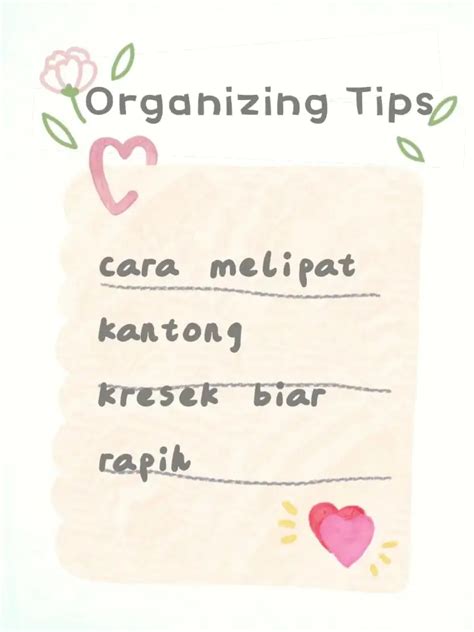 Organizing Tips
cara melipat
kantong
kresek biar
rapih